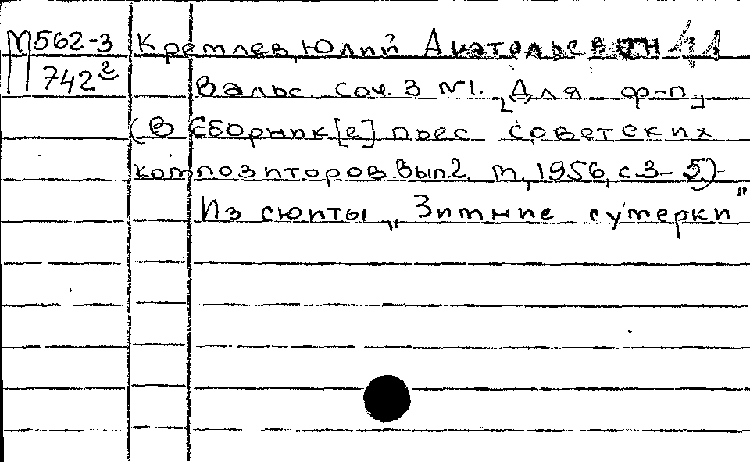 М562-3 Кремлев, Юлий Анатольевич
742² Вальс. Соч. 3 №1. [Для ф-п]
(В сборник[е] пьес советских
композиторов. Вып 2. М, 1956, с. 3-5)
Из сюиты „Зимние сумерки"